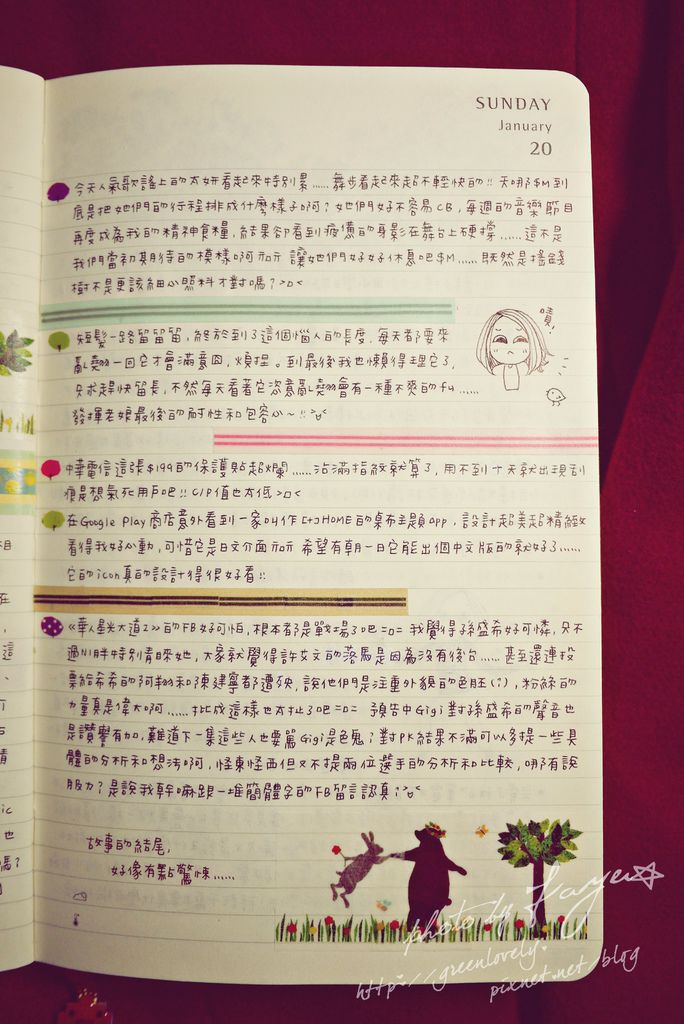 SUNDAY
January
20
今天人氣歌謠上的太妍看起來特別累……舞步看起來超不輕快的!! 天哪$M到
底是把她們的行程排成什麼樣子啊?她們好不容易CB,每週的音樂節目
再度成為我的精神食糧,結果卻看到疲憊的身影在舞台上硬撐……這不是
我們當初期待的模樣啊 讓她們好好休息吧$M……既然是搖錢
樹不是更該細心照料才對嗎?>口<
短髮一路留留留,終於到了這個惱人的長度,每天都要來
亂翹一回它才會滿意囧,煩捏。到最後我也懶得理它了,
只求趕快留長,不然每天看著它恣意亂翹會有一種不爽的fu……
發揮老娘最後的耐性和包容心~!!
嘖!
中華電信這張$199的保護貼超爛……沾滿指紋就算了,用不到十天就出現刮
痕是想氣死用戶吧!! C/P值也太低>口<
在Google Play商店意外看到一家叫作[+]HOME的桌布主題app,設計超美超精緻
看得我好心動,可惜它是日文介面 希望有朝一日它能出個中文版的就好了……
它的icon真的設計得很好看!!
《華人星光大道2》的FB好可怕,根本都是戰場了吧=口= 我覺得孫盛希好可憐,只不
過NI胖特別青睞她,大家就覺得許艾文的落馬是因為沒有後台……甚至還連投
票給希希的阿翔和陳建寧都遭殃,說他們是注重外貌的色胚(?),粉絲的
力量真是偉大啊……扯成這樣也太扯了吧=口= 預告中Gigi對孫盛希的聲音也
是讚譽有加,難道下一集這些人也要罵Gigi是色鬼?對PK結果不滿可以多提一些具
體的分析和想法啊,怪東怪西但又不提兩位選手的分析和比較,哪有說
服力?是說我幹嘛跟一堆簡體字的FB留言認真?
故事的結尾,
好像有點驚悚……
photo by Kaye☆
http://greenlovely.
pixnet.net/blog